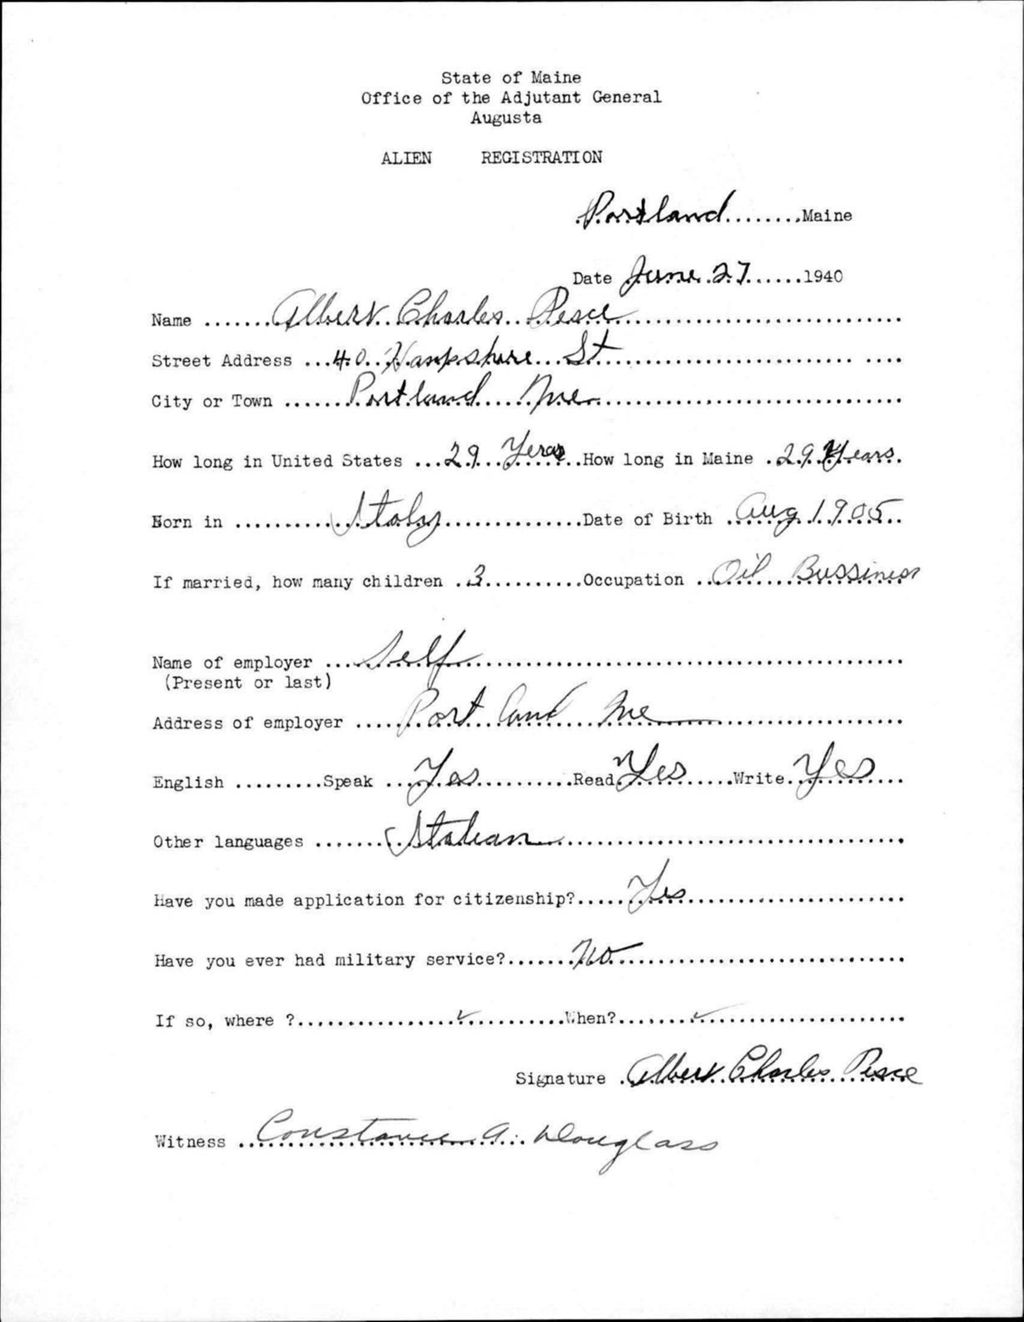 State of Maine
Office of the Adjutant General
Augusta
ALIEN REGISTRATION
Portland........Maine
Date June 27......1940
Name .......Albert Charles Pesce..............................
Street Address ...40 Hampshire St.......................... ....
City or Town ......Portland Me..............................
How long in United States ...29 Years..How long in Maine .29 Years.
Born in ..........Italy..............Date of Birth .Aug 1905..
If married, how many children .3..........Occupation ..Oil Bussiness
Name of employer ....Self..........................................
(Present or last)
Address of employer .....Portland Me..................
English .........Speak ...Yes..........Read Yes.....Write.Yes...
Other languages .......Italian..................................
Have you made application for citizenship?.....Yes......................
Have you ever had military service?.......No............................
If so, where ?................✓..........When?.......✓....................
Signature .Albert Charles Pesce
Witness ..Constance A. Douglass